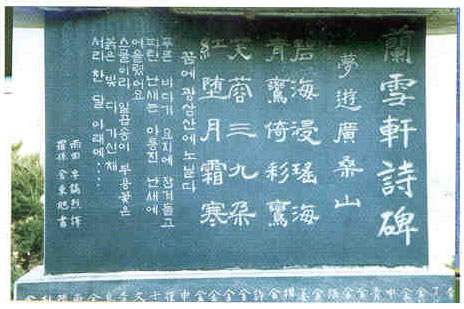 蘭雪軒詩碑
夢遊廣桑山
碧海浸瑤海
青鸞倚彩鸞
芙蓉三九朶
紅墮月霜寒
꿈에 광상산에 노닐다
푸른 바다가 요지에 잠겨들고
파란 난새는 아롱진 난새에
어울렸어요
스물이라 일곱송이 부용꽃은
붉은 빛 다 가신채
서리 찬 달 아래에...
雨田 辛鎬烈 譯
羅孫 金東旭 書